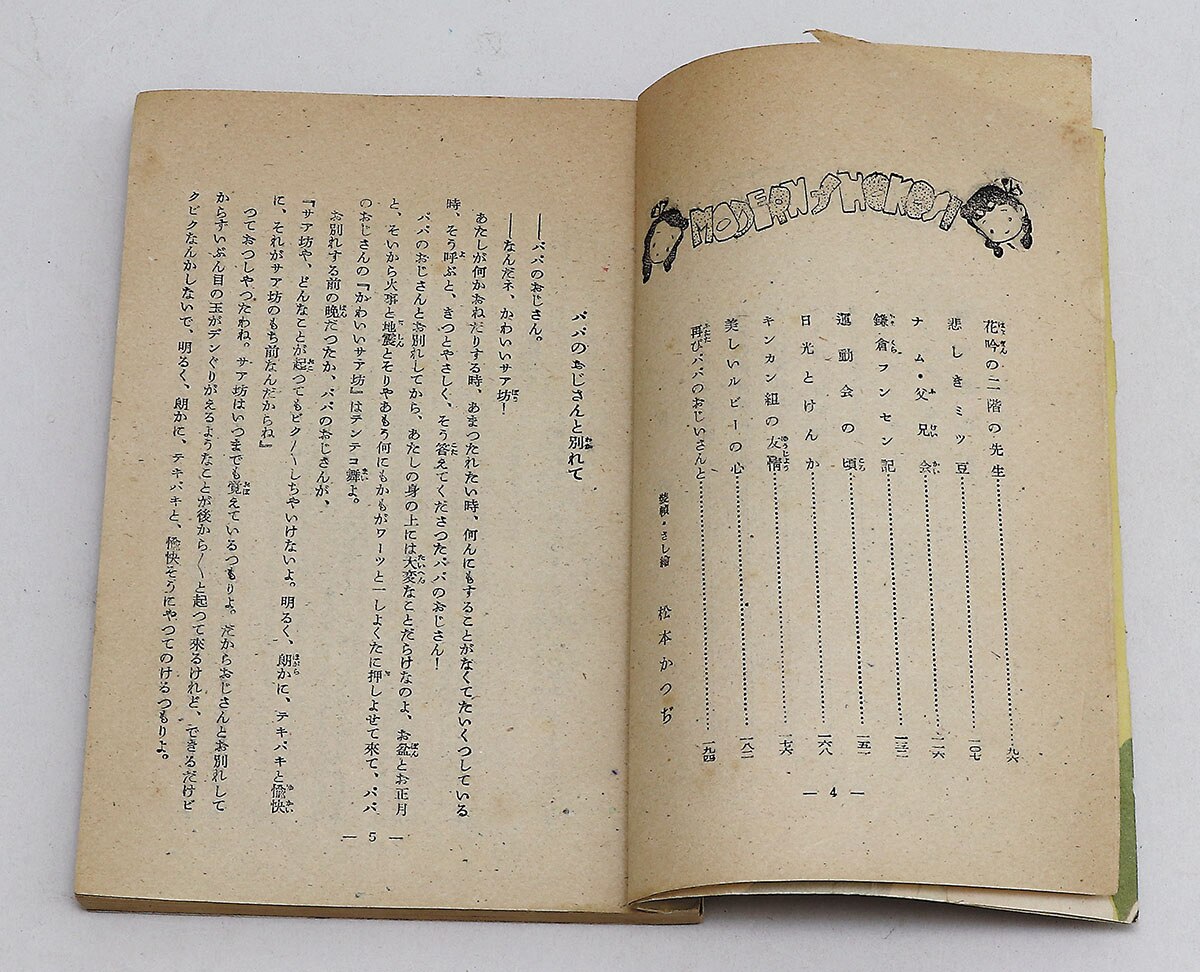 MODERN SHŌKŌSI
花吟の二階の先生……九六
悲しきミツ豆……一〇七
ナム・父兄会……一一六
鎌倉フンセン記……一三二
運動会の頃……一五一
日光とけんか……一六八
キンカン紐の友情……一七六
美しいルビーの心……一八二
再びパパのおじいさんと……一九四
装幀・さし繪 松本かつぢ
— 4 —
パパのおじさんと別れて
――パパのおじさん。
――なんだネ、かわいいサア坊!
あたしが何かおねだりする時、あまつたれたい時、何んにもすることがなくてたいくつしている
時、そう呼ぶと、きつとやさしく、そう答えてくださつたパパのおじさん!
パパのおじさんとお別れしてから、あたしの身の上には大変なことだらけなのよ、お盆とお正月
と、そいから火事と地震とそりやあもう何にもかもがワーツと一しよくたに押しよせて來て、パパ
のおじさんの『かわいいサア坊』はテンテコ舞よ。
お別れする前の晩だつたか、パパのおじさんが、
『サア坊や、どんなことが起つてもビク〳〵しちやいけないよ。明るく、朗かに、テキパキと愉快
に、それがサア坊のもち前なんだからね』
つておつしやつたわね。サア坊はいつまでも覚えているつもりよ。だからおじさんとお別れして
からずいぶん目の玉がデングりがえるようなことが後から〳〵と起つて來るけれど、できるだけビ
クビクなんかしないで、明るく、朗かに、テキパキと、愉快そうにやつてのけるつもりよ。
— 5 —